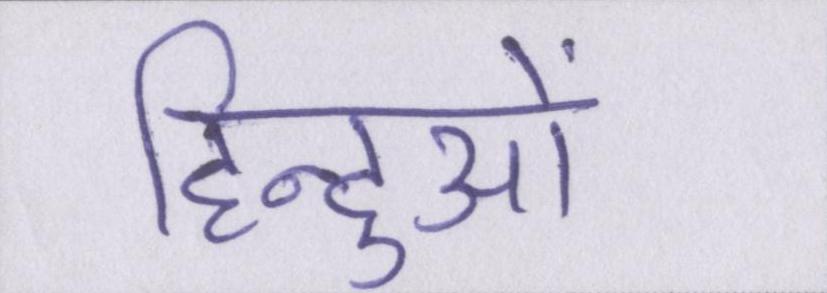 हिन्दुओं